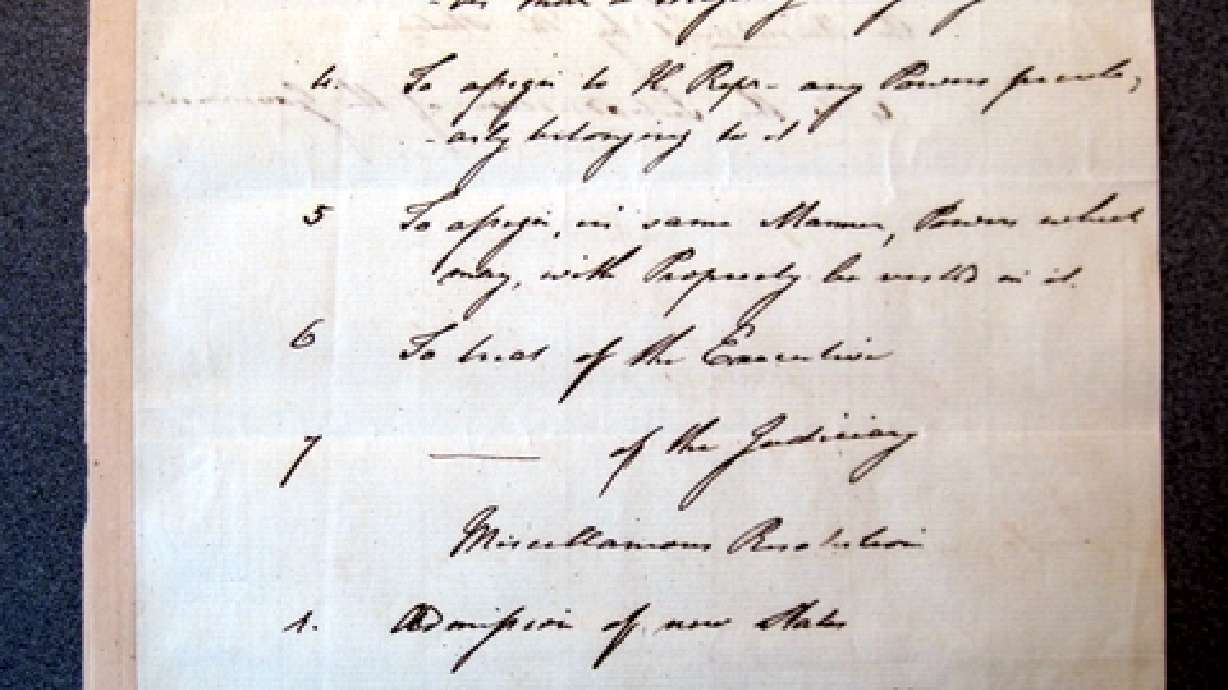 4. To assign to H. Repr- any Powers peculi-
-arly belonging to it
5 To assign, in same Manner, Powers which
may, with Propriety be vested in it.
6 To treat of the Executive
7 —— of the Judiciary
Miscellaneous Resolution
1. Admission of new States